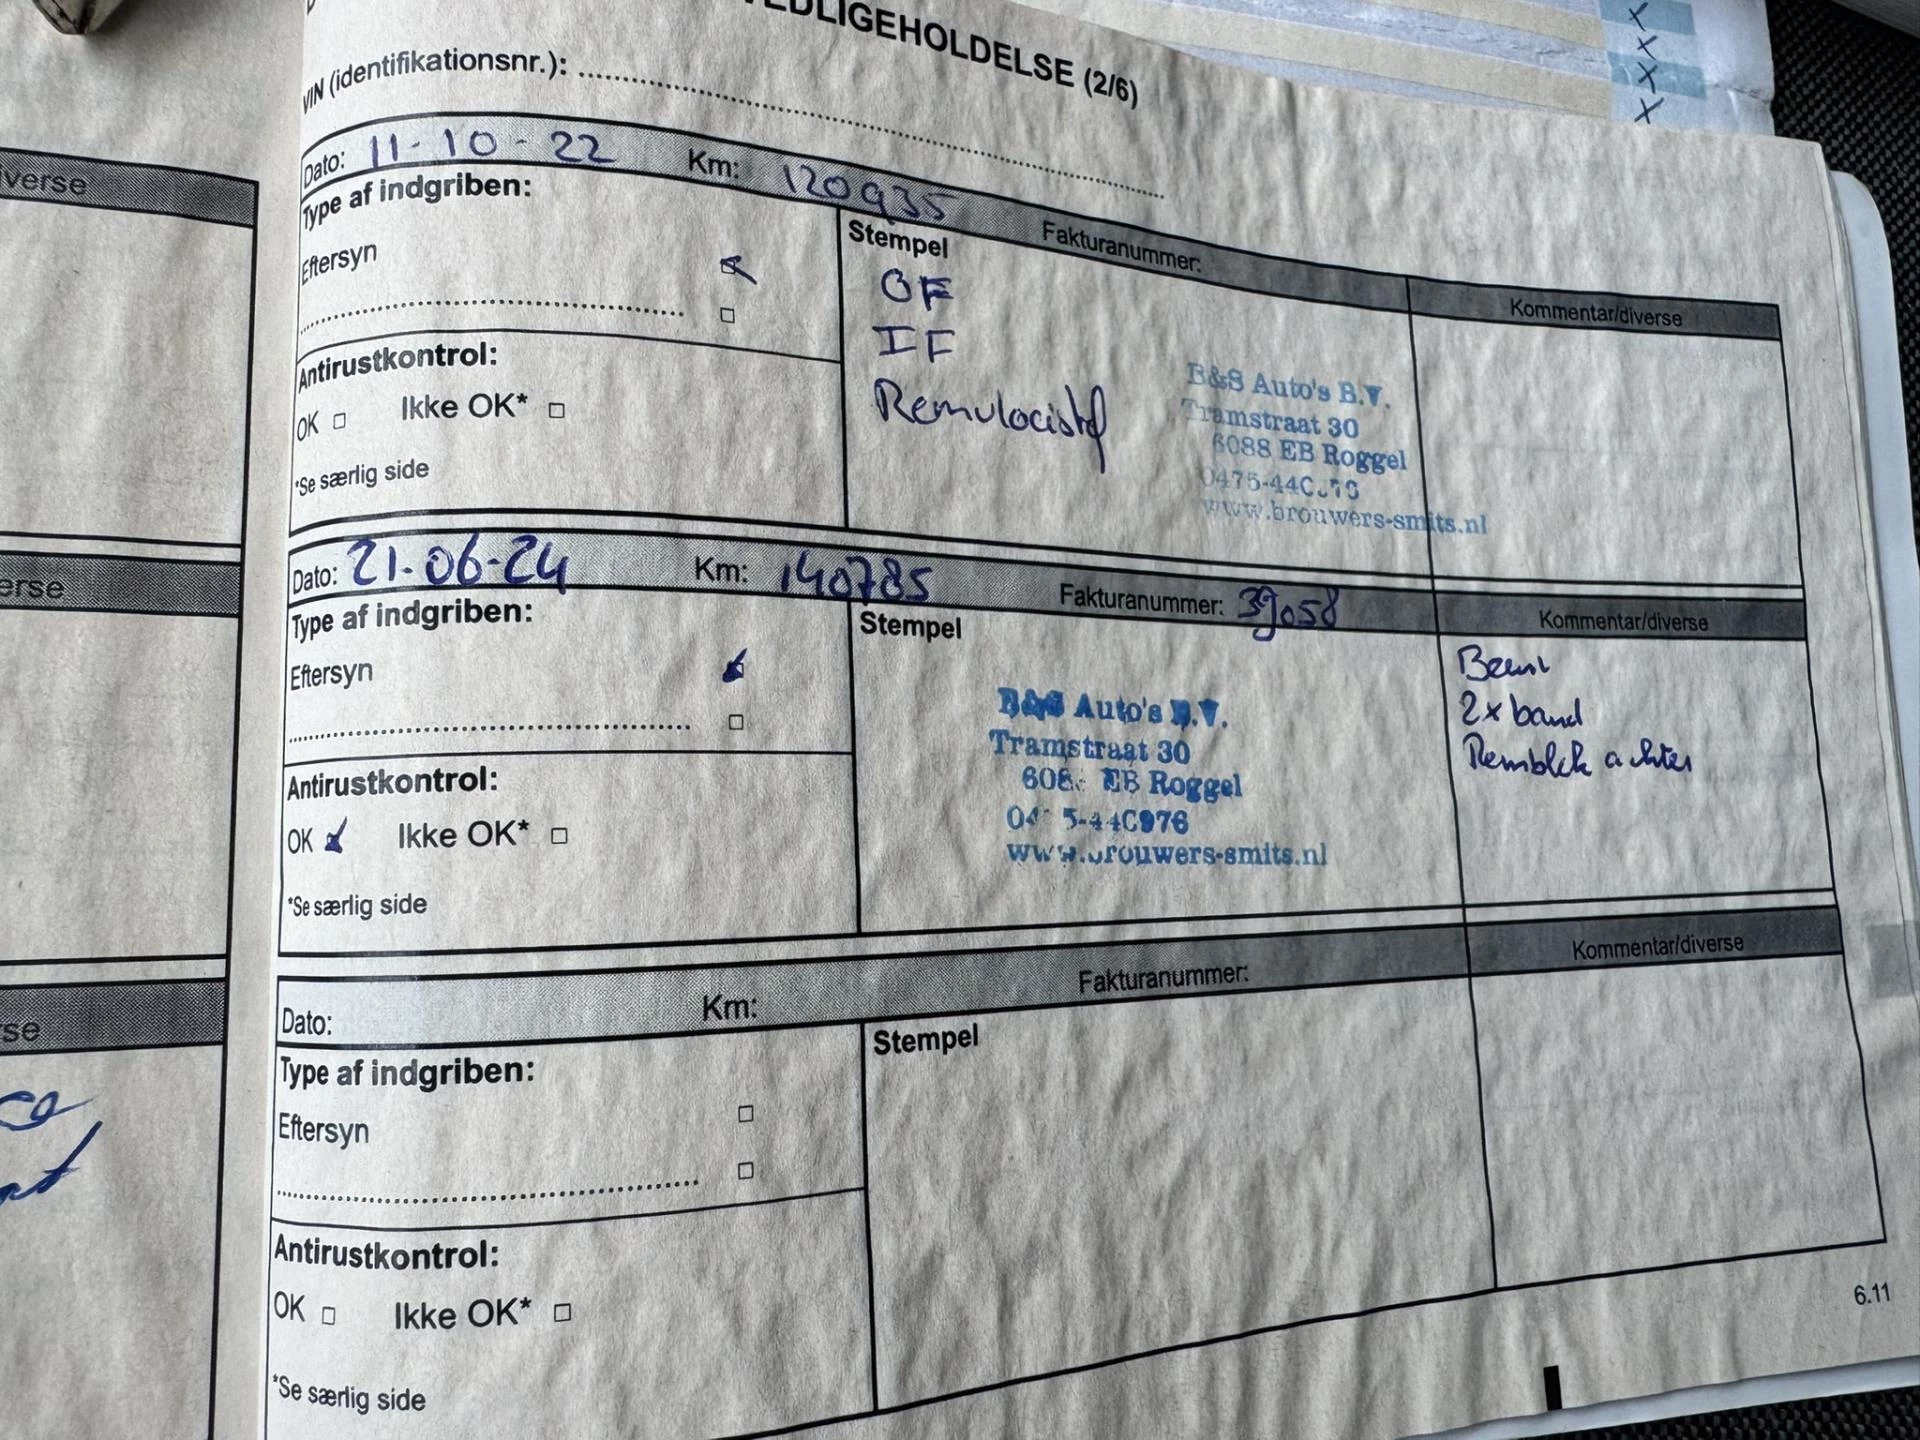 VEDLIGEHOLDELSE (2/6)
VIN (identifikationsnr.):
Dato: 11-10-22 Km: 120935 Fakturanummer:
Type af indgriben:
Eftersyn
Stempel
Kommentar/diverse
OF
IF
Antirustkontrol:
OK Ikke OK*
*Se særlig side
B&S Auto's B.V.
Tramstraat 30
6088 EB Roggel
www.brouwers-smits.nl
Dato: 21-06-24 Km: 140785 Fakturanummer: 39058
Kommentar/diverse
Type af indgriben:
Eftersyn
Stempel
Beurt
2x band
Remblok achter
Antirustkontrol:
OK Ikke OK*
*Se særlig side
B&S Auto's B.V.
Tramstraat 30
EB Roggel
www.brouwers-smits.nl
Dato: Km: Fakturanummer:
Kommentar/diverse
Type af indgriben:
Eftersyn
Stempel
Antirustkontrol:
OK Ikke OK*
*Se særlig side
6.11